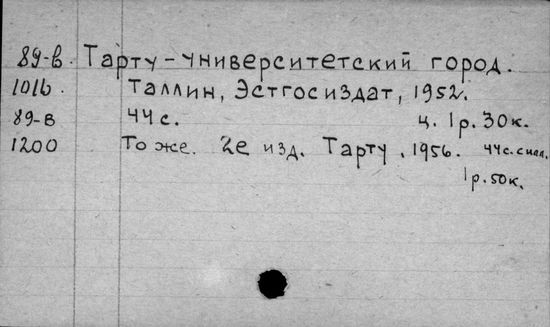 89-в. Тарту-университетский город.
1016. Таллин, Эстгосиздат, 1952.
89-в 44 с. ц. 1р. 30к.
1200 То же. 2е изд. Тарту. 1956. 44 с. с илл.
1р. 50к.